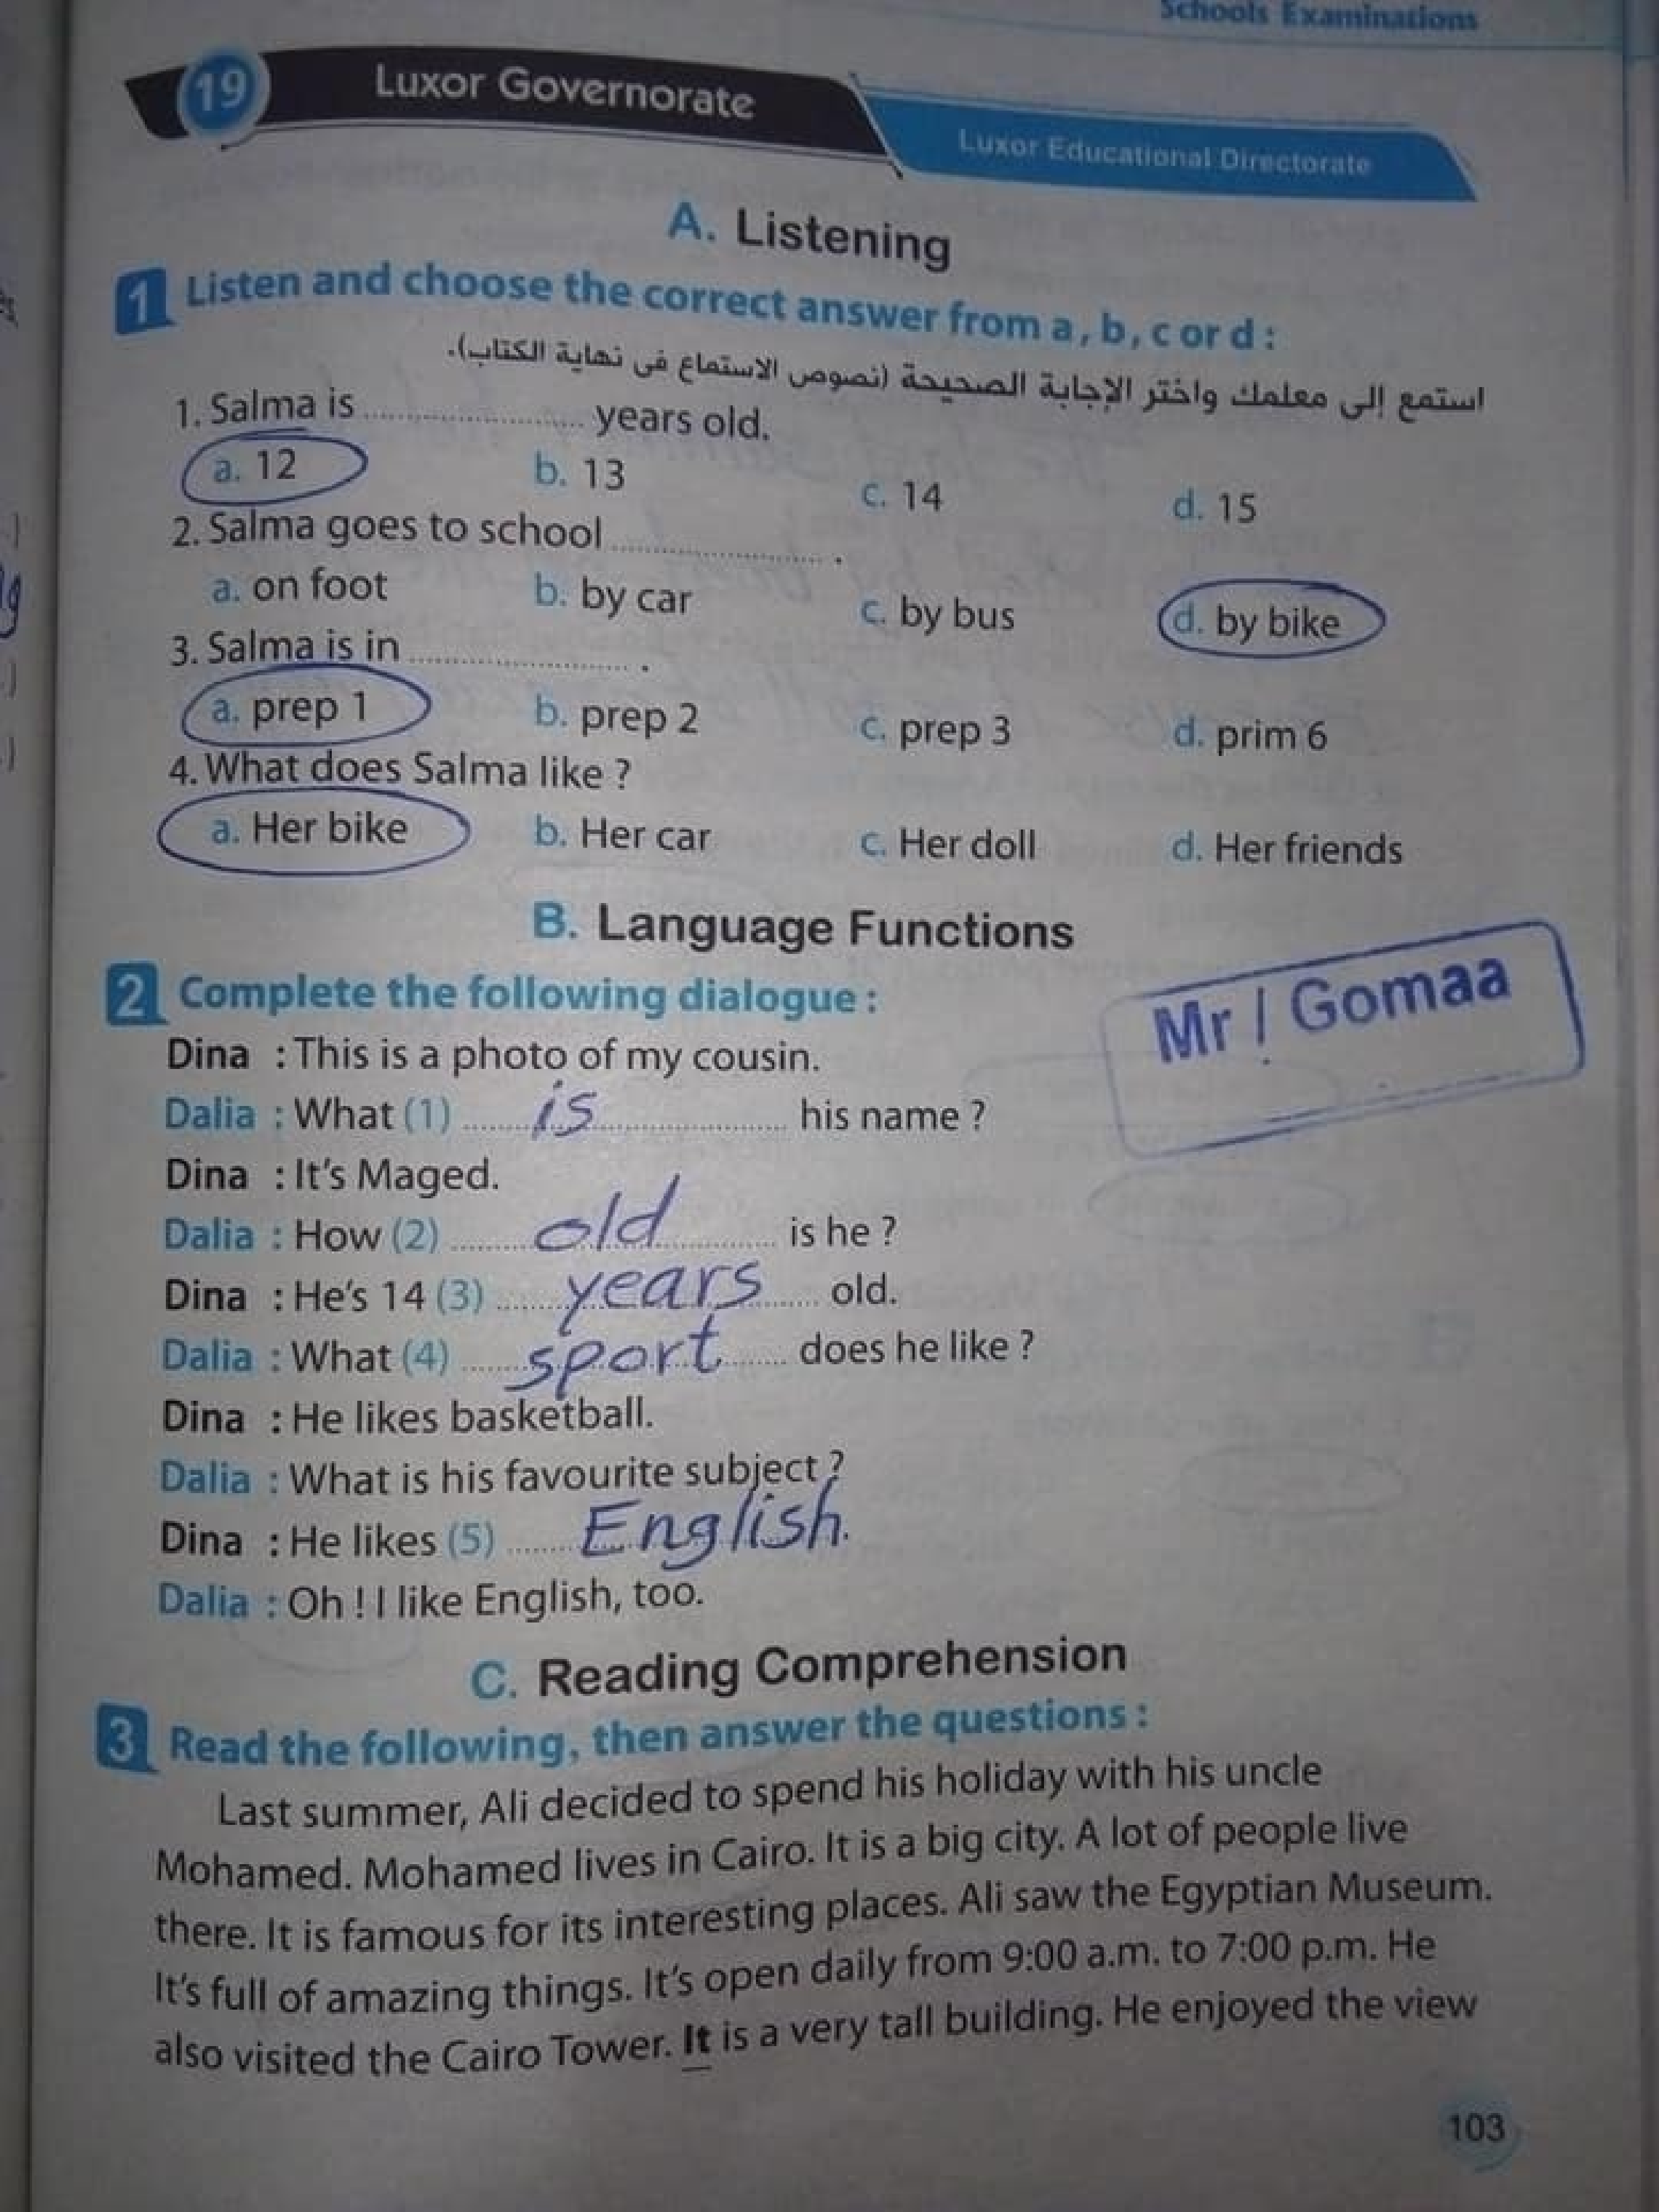 Schools Examinations
19 Luxor Governorate
Luxor Educational Directorate
A. Listening
1 Listen and choose the correct answer from a, b, c or d :
استمع إلى معلمك واختر الإجابة الصحيحة (نصوص الاستماع فى نهاية الكتاب).
1. Salma is .................... years old.
a. 12 b. 13 c. 14 d. 15
2. Salma goes to school .................... .
a. on foot b. by car c. by bus d. by bike
3. Salma is in .................... .
a. prep 1 b. prep 2 c. prep 3 d. prim 6
4. What does Salma like ?
a. Her bike b. Her car c. Her doll d. Her friends
B. Language Functions
2 Complete the following dialogue :
Mr / Gomaa
Dina : This is a photo of my cousin.
Dalia : What (1) is his name ?
Dina : It's Maged.
Dalia : How (2) old is he ?
Dina : He's 14 (3) years old.
Dalia : What (4) sport does he like ?
Dina : He likes basketball.
Dalia : What is his favourite subject ?
Dina : He likes (5) English.
Dalia : Oh ! I like English, too.
C. Reading Comprehension
3 Read the following, then answer the questions :
Last summer, Ali decided to spend his holiday with his uncle
Mohamed. Mohamed lives in Cairo. It is a big city. A lot of people live
there. It is famous for its interesting places. Ali saw the Egyptian Museum.
It's full of amazing things. It's open daily from 9:00 a.m. to 7:00 p.m. He
also visited the Cairo Tower. It is a very tall building. He enjoyed the view
103